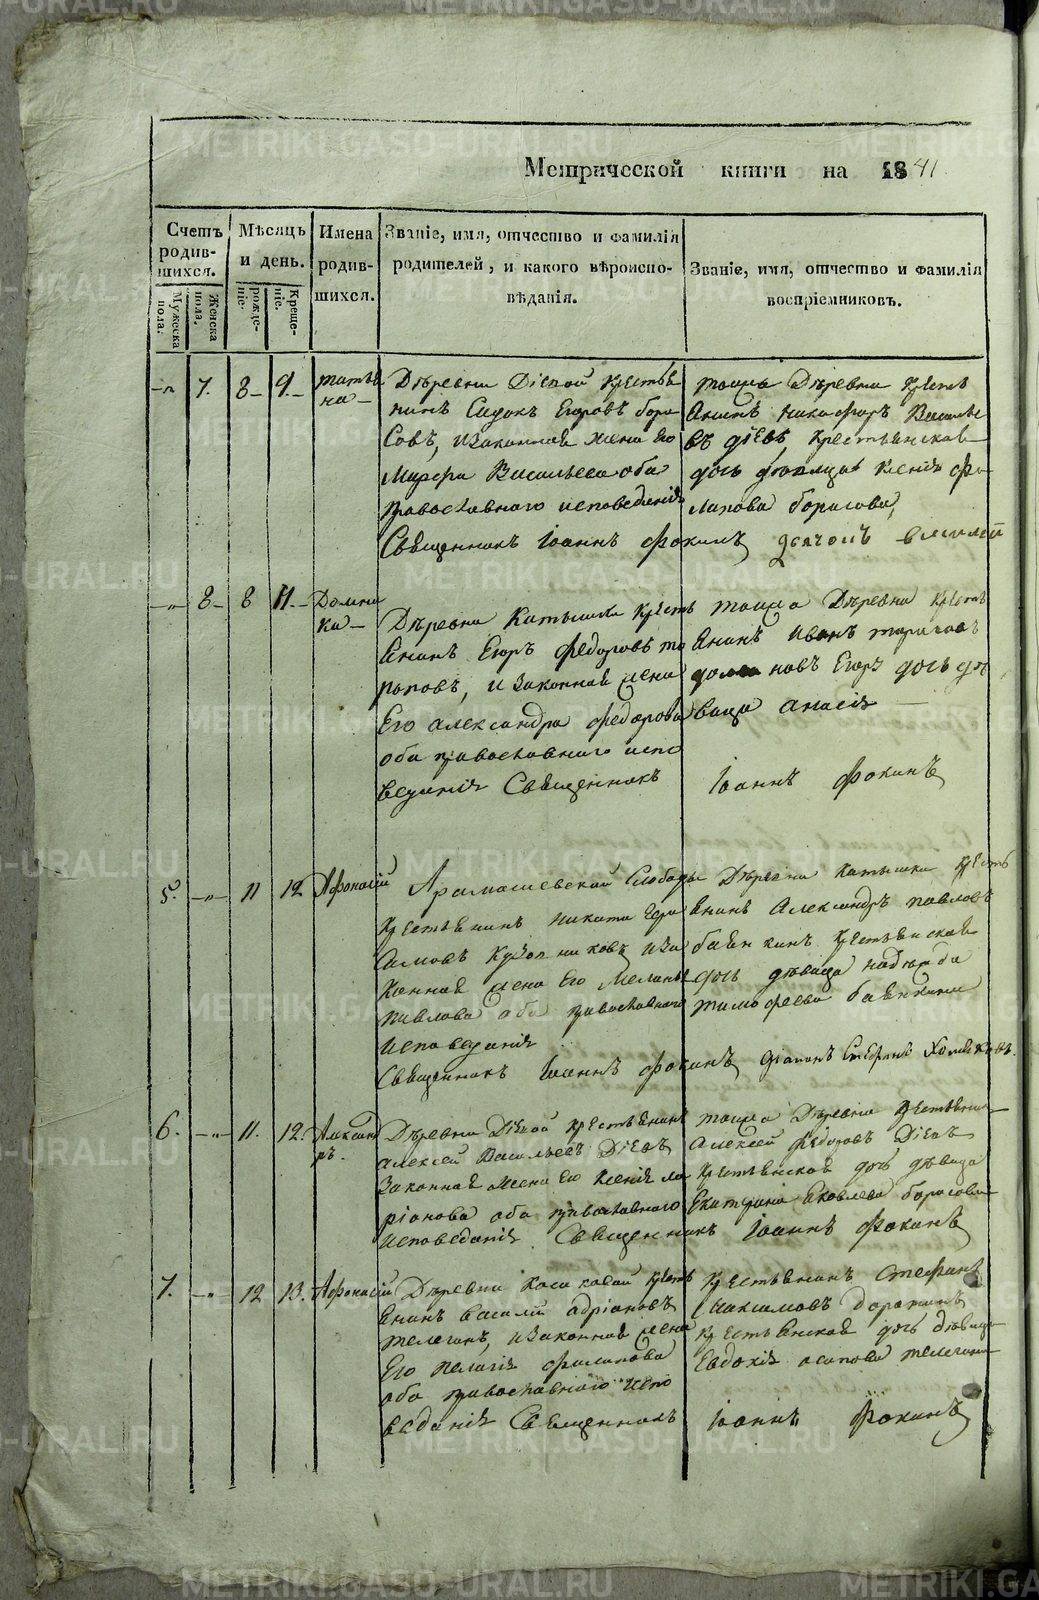 Метрической книги на 1841
Счетъ родив-шихся.
Мужеска пола.
Женска пола.
Мѣсяцъ и день.
рожде-ніе.
Креще-ніе.
Имена родив-шихся.
Званіе, имя, отчество и фамилія
родителей, и какого вѣроиспо-
вѣданія.
Званіе, имя, отчество и фамилія
воспріемниковъ.
7. 8 9. Татья
на
Деревни Діевой крестья
нинъ Сидоръ Егоровъ бори
совъ, и законная жена его
Марфа Васильева оба
православнаго исповеданія
Священникъ Іоаннъ Фокинъ
тоижа Деревни крестъ
янинъ Никифоръ Василье
въ діевъ, крестьянская
дочь девица Ксенія Фи
липова борисова,
8 8 11. Домни
ка
Деревни Катышки крестъ
янинъ Егоръ Федоровъ то
роповъ, и законная жена
Его александра федорова
оба православнаго испо
веданія Священникъ
тоижа Деревни крестъ
янинъ Иванъ
Егоръ дочь де
вица
Іоаннъ Фокинъ
5. 11 12 Афонасій
Арамашевской Слободы
крестьянинъ никита Гера
симовъ и за
конная жена его Меланья
павлова оба православнаго
исповеданія
Священникъ Іоаннъ Фокинъ
Деревни Катышки крестъ
янинъ Александръ павловъ
баянкинъ крестьянская
дочь девица надежда
тимофеева баянкина
Стефанъ
6. 11. 12. Александ
ръ.
Деревни Діевой крестьянинъ
алексей Васильевъ Діевъ
законная жена его Ксенія ла
ріонова оба православнаго
исповеданія Священникъ Іоаннъ Фокинъ
тоижа Деревни крестьянинъ
Алексей Федоровъ Діевъ
крестьянская дочь девица
Екатерина Яковлева борисова
7. 12 13. Афонасій
Деревни Косиковой крестъ
янинъ василій адріановъ
телегинъ, и законная жена
Его пелагія филипова
оба православнаго испо
веданія Священникъ
крестьянинъ Стефанъ
Максимовъ Дорохинъ
крестьянская дочь девица
Евдокія осипова телегина
Іоаннъ Фокинъ
METRIKI.GASO-URAL.RU